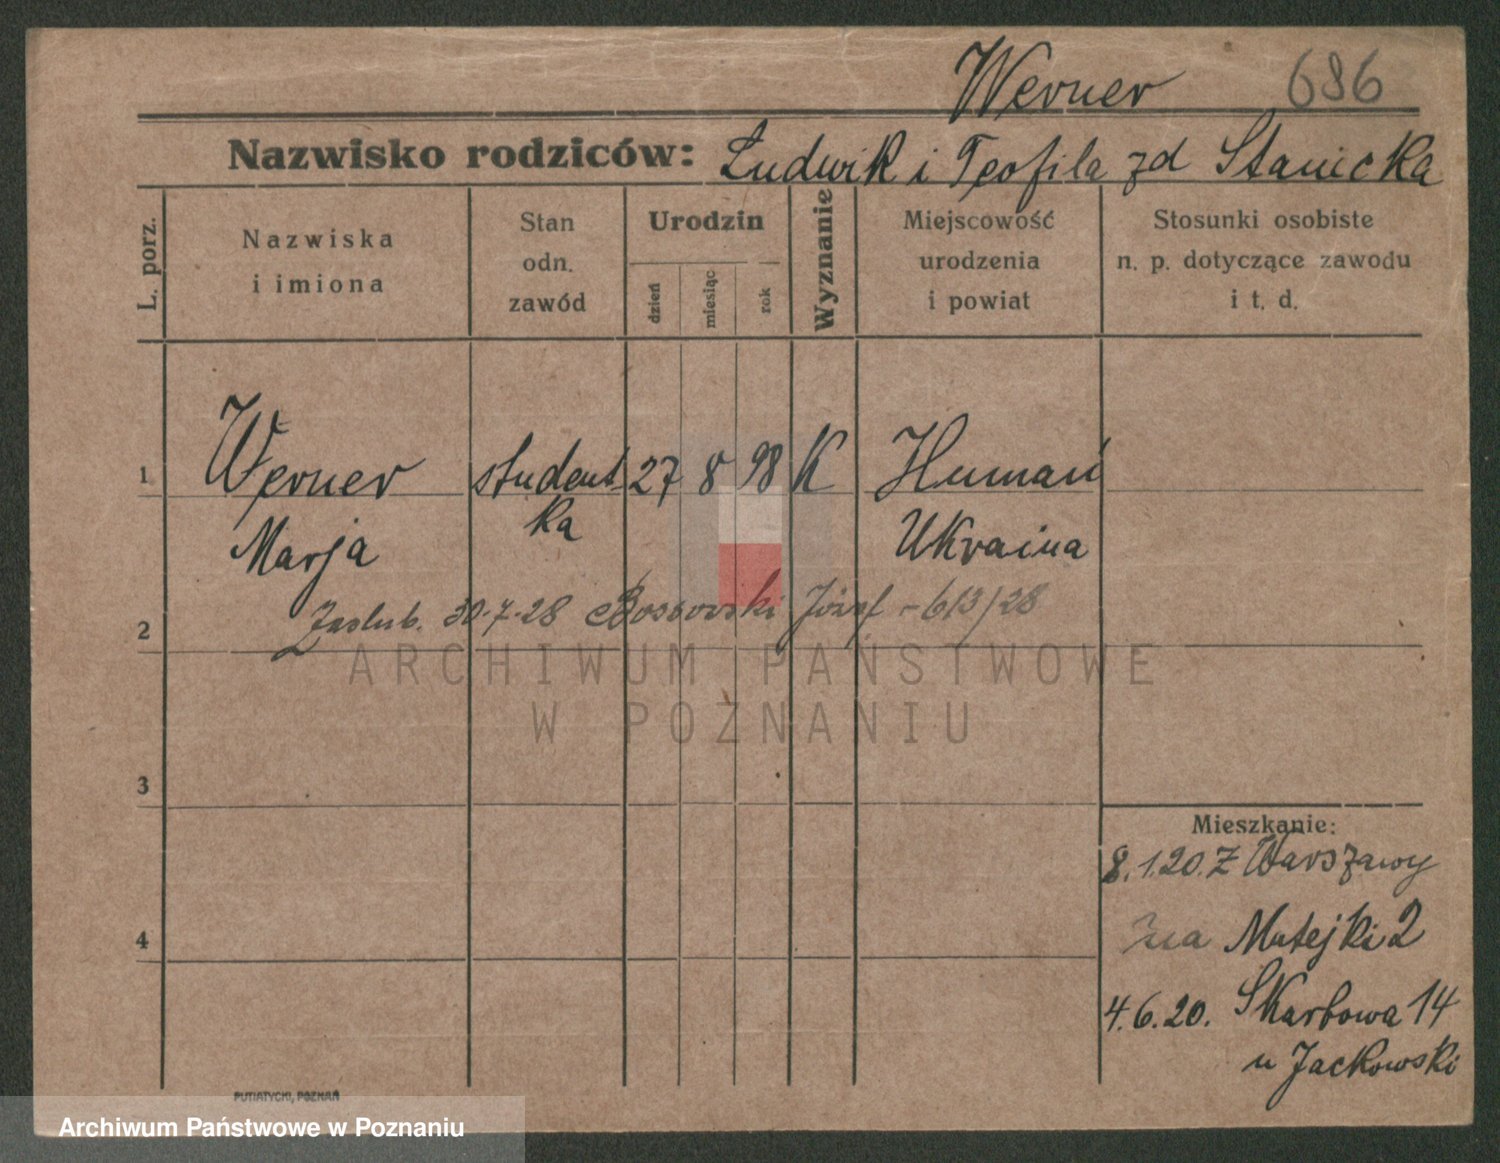 Werner 686
Nazwisko rodziców: Ludwik i Teofila zd Stanicka
L. porz.
Nazwiska
i imiona
Stan
odn.
zawód
Urodzin
dzień
miesiąc
rok
Wyznanie
Miejscowość
urodzenia
i powiat
Stosunki osobiste
n. p. dotyczące zawodu
i t. d.
1 Werner student- 27 8 98 K Humań
Marja ka Ukraina
2 Zaslub. 30-7-28 Bossowski Józef - 613/28
ARCHIWUM PAŃSTWOWE
W POZNANIU
3
Mieszkanie:
8.1.20. Z Warszawy
4 na Matejki 2
4.6.20. Skarbowa 14
u Jackowski
PUTIATYCKI, POZNAŃ
Archiwum Państwowe w Poznaniu